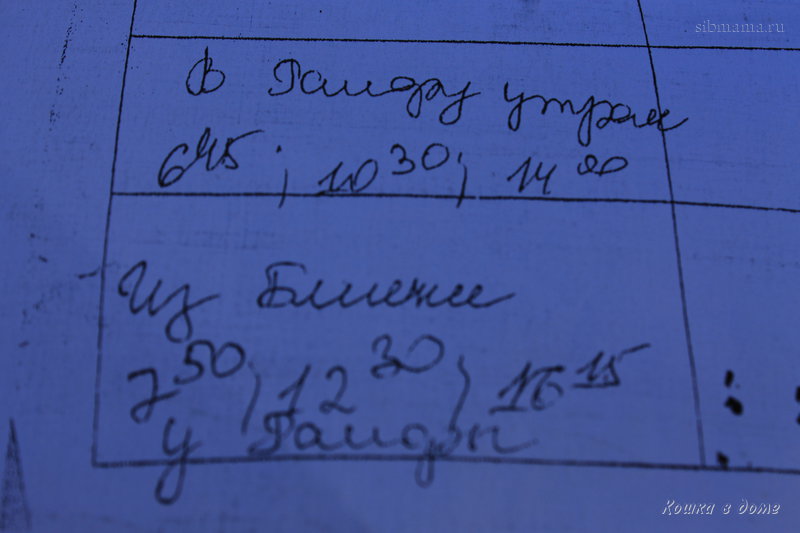 sibmama.ru
В Гаидру утрам
6 45; 10 30; 14 20
Из Ближни
7 50; 12 30; 16 15
у Гаидры
Кошка в доме